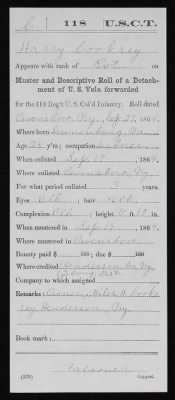 C | 118 | U.S.C.T.
Harry Cooksey
Appears with rank of Pvt on
Muster and Descriptive Roll of a Detach-
ment of U. S. Vols. forwarded
for the 118 Reg't U.S. Col'd Infantry. Roll dated
Owensboro Ky, Sep 23, 1864.
Where born
Age y'rs; occupation Laborer
When enlisted Sep 17, 1864.
Where enlisted Owensboro Ky
For what period enlisted 3 years.
Eyes Blk; hair Blk
Complexion Blk; height 5 ft. 10 in.
When mustered in Sep 17, 1864.
Where mustered in Owensboro
Bounty paid $ 100; due $ 100
Where credited Henderson Co Ky
Company to which assigned
Remarks: Owner, Miles H Cook-
sey, Henderson, Ky.
Book mark:
(339) Copyist.